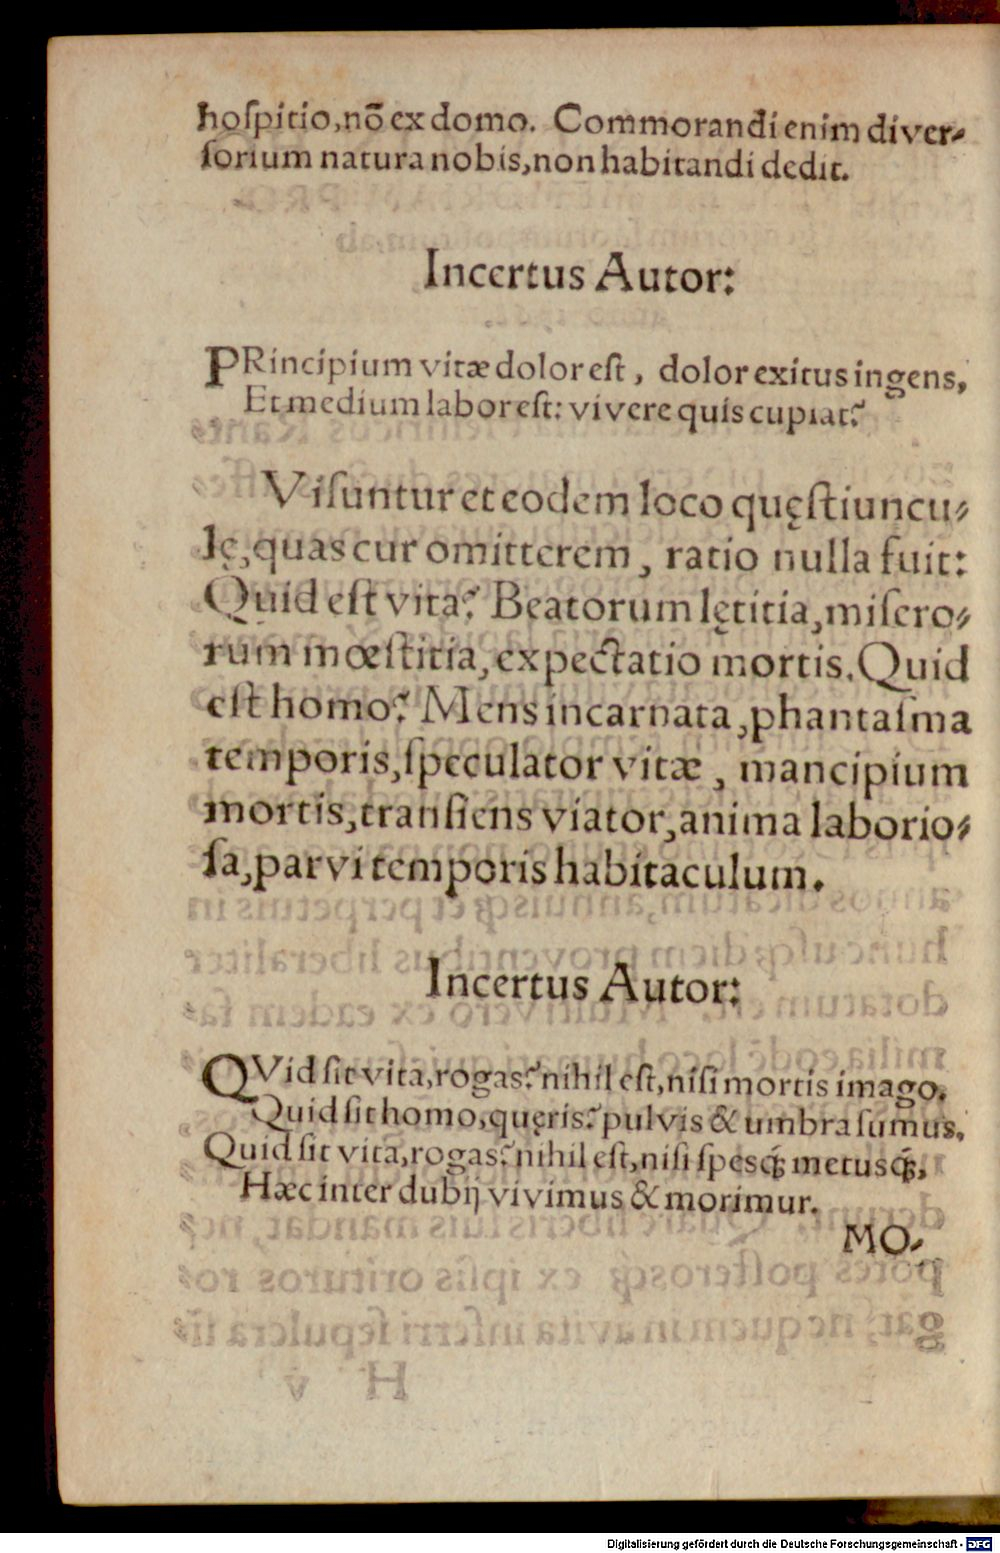 hoſpitio, nõ ex domo. Commorandi enim diver-
ſorium natura nobis, non habitandi dedit.
Incertus Autor:
PRincipium vitæ dolor eſt, dolor exitus ingens,
Et medium labor eſt: vivere quis cupiat?
Viſuntur et eodem loco quęſtiuncu-
lę, quas cur omitterem, ratio nulla fuit:
Quid eſt vita? Beatorum lętitia, miſero-
rum mœſtitia, expectatio mortis. Quid
eſt homo? Mens incarnata, phantaſma
temporis, ſpeculator vitæ, mancipium
mortis, tranſiens viator, anima laborio-
ſa, parvi temporis habitaculum.
Incertus Autor:
QVid ſit vita, rogas? nihil eſt, niſi mortis imago.
Quid ſit homo, quęris? pulvis & umbra ſumus.
Quid ſit vita, rogas? nihil eſt, niſi ſpesq́; metusq́;,
Hæc inter dubij vivimus & morimur.
MO-
Digitalisierung gefördert durch die Deutsche Forschungsgemeinschaft - DFG